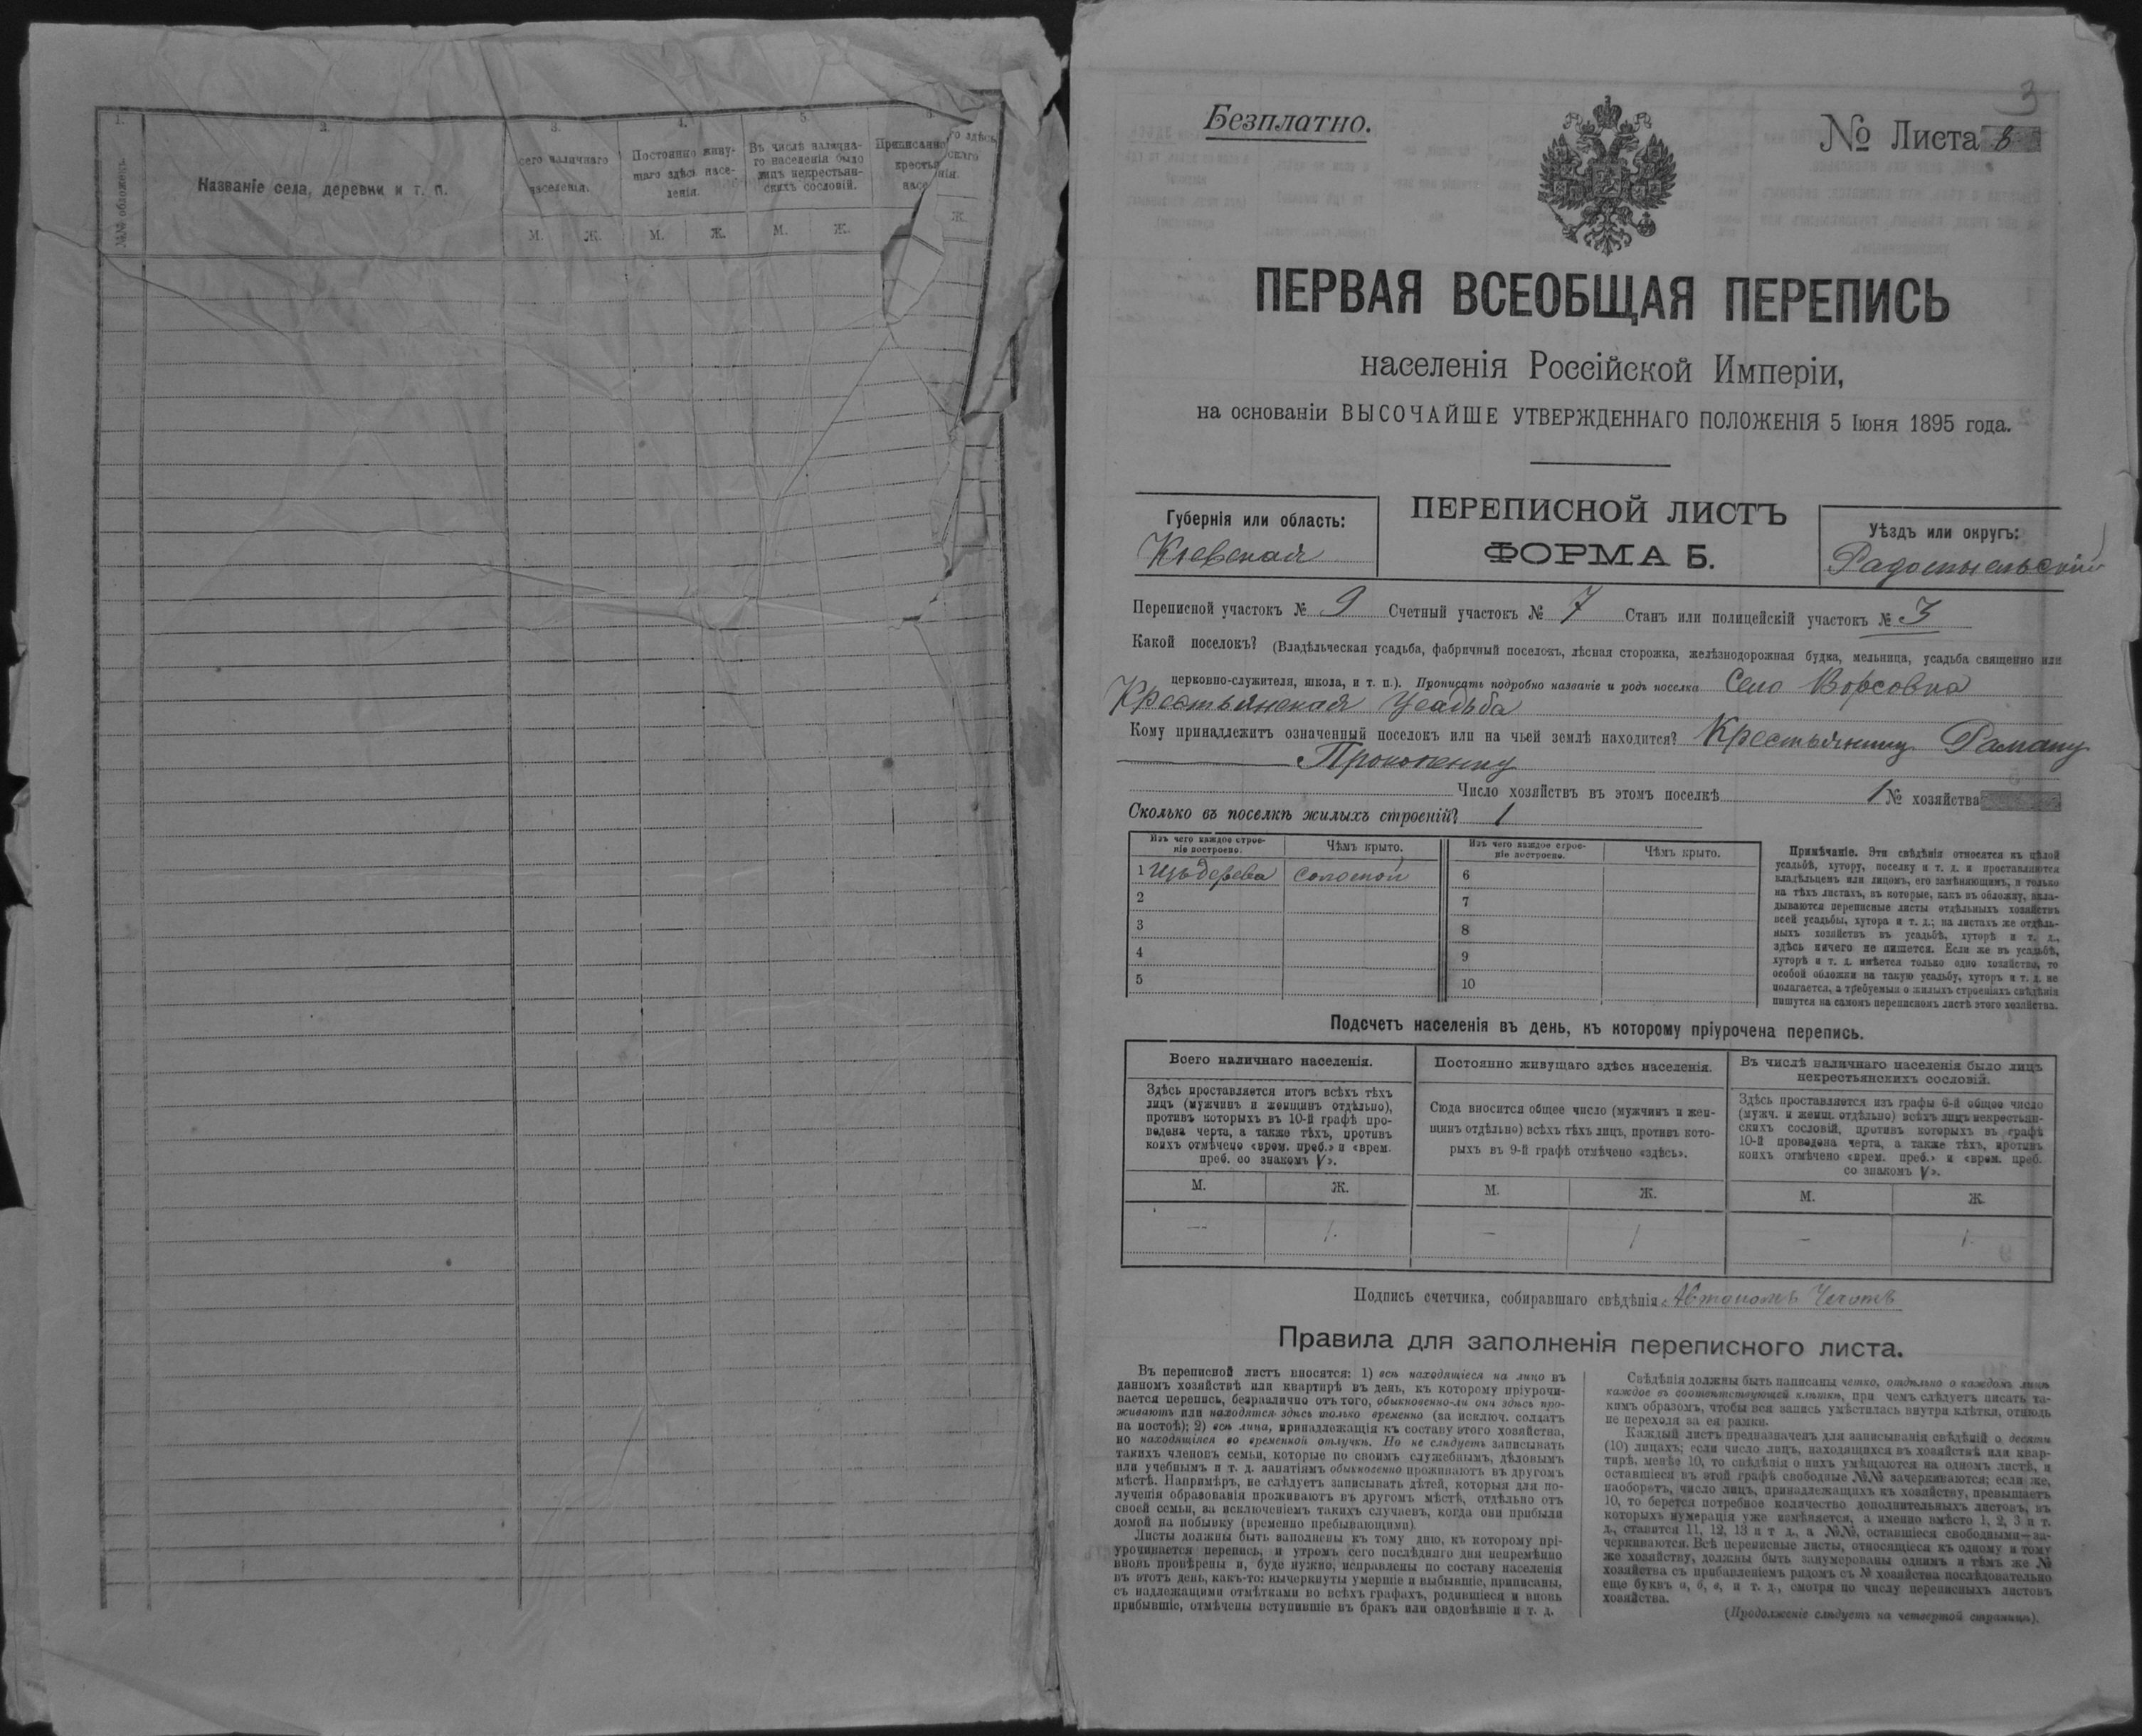 1.
2.
3.
4.
5.
6.
№№ обложекъ.
Названіе села, деревни и т. п.
сего наличнаго
населенія.
Постоянно живу-
щаго здѣсь насе-
ленія.
Въ числѣ налична-
го населенія было
лицъ некрестьян-
скихъ сословій.
Приписанно го здѣсь
крестья скаго
насе нія.
М. Ж. М. Ж. М. Ж. Ж.
3
Безплатно.
№ Листа 8
ПЕРВАЯ ВСЕОБЩАЯ ПЕРЕПИСЬ
населенія Россійской Имперіи,
на основаніи ВЫСОЧАЙШЕ УТВЕРЖДЕННАГО ПОЛОЖЕНІЯ 5 Іюня 1895 года.
Губернія или область:
Кіевская
ПЕРЕПИСНОЙ ЛИСТЪ
ФОРМА Б.
Уѣздъ или округъ:
Радомысльскій
Переписной участокъ № 9 Счетный участокъ № 7 Станъ или полицейскій участокъ № 3
Какой поселокъ? (Владѣльческая усадьба, фабричный поселокъ, лѣсная сторожка, желѣзнодорожная будка, мельница, усадьба священно или
церковно-служителя, школа, и т. п.). Прописать подробно названіе и родъ поселка Село Ворсовка
Крестьянская Усадьба
Кому принадлежитъ означенный поселокъ или на чьей землѣ находится? Крестьянину Роману
Прокопенку
Число хозяйствъ въ этомъ поселкѣ 1 № хозяйства
Сколько въ поселкѣ жилыхъ строеній? 1
Изъ чего каждое строе-
ніе построено.
Чѣмъ крыто.
Изъ чего каждое строе-
ніе построено.
Чѣмъ крыто.
1 Изъ дерева Соломой 6
2 7
3 8
4 9
5 10
Примѣчаніе. Эти свѣдѣнія относятся къ цѣлой
усадьбѣ, хутору, поселку и т. д. и проставляются
владѣльцемъ или лицомъ, его замѣняющимъ, и только
на тѣхъ листахъ, въ которые, какъ въ обложку, вкла-
дываются переписные листы отдѣльныхъ хозяйствъ
всей усадьбы, хутора и т. д.; на листахъ же отдѣль-
ныхъ хозяйствъ въ усадьбѣ, хуторѣ и т. д.,
здѣсь ничего не пишется. Если же въ усадьбѣ,
хуторѣ и т. д. имѣется только одно хозяйство, то
особой обложки на такую усадьбу, хуторъ и т. д. не
полагается, а требуемыя о жилыхъ строеніяхъ свѣдѣнія
пишутся на самомъ переписномъ листѣ этого хозяйства.
Подсчетъ населенія въ день, къ которому пріурочена перепись.
Всего наличнаго населенія.
Здѣсь проставляется итогъ всѣхъ тѣхъ
лицъ (мужчинъ и женщинъ отдѣльно),
противъ которыхъ въ 10-й графѣ про-
ведена черта, а также тѣхъ, противъ
коихъ отмѣчено «врем. преб.» и «врем.
преб. со знакомъ V».
Постоянно живущаго здѣсь населенія.
Сюда вносится общее число (мужчинъ и жен-
щинъ отдѣльно) всѣхъ тѣхъ лицъ, противъ кото-
рыхъ въ 9-й графѣ отмѣчено «здѣсь».
Въ числѣ наличнаго населенія было лицъ
некрестьянскихъ сословій.
Здѣсь проставляется изъ графы 6-й общее число
(мужч. и женщ. отдѣльно) всѣхъ лицъ некрестьян-
скихъ сословій, противъ которыхъ въ графѣ
10-й проведена черта, а также тѣхъ, противъ
коихъ отмѣчено «врем. преб.» и «врем. преб.
со знакомъ V».
М. Ж. М. Ж. М. Ж.
— 1. — 1 — 1.
Подпись счетчика, собиравшаго свѣдѣнія: Автономъ
Правила для заполненія переписного листа.
Въ переписной листъ вносятся: 1) всѣ находящіеся на лицо въ
данномъ хозяйствѣ или квартирѣ въ день, къ которому пріурочи-
вается перепись, безразлично отъ того, обыкновенно-ли они здѣсь про-
живаютъ или находятся здѣсь только временно (за исключ. солдатъ
на постоѣ); 2) всѣ лица, принадлежащія къ составу этого хозяйства,
но находящіяся во временной отлучкѣ. Но не слѣдуетъ записывать
такихъ членовъ семьи, которые по своимъ служебнымъ, дѣловымъ
или учебнымъ и т. д. занятіямъ обыкновенно проживаютъ въ другомъ
мѣстѣ. Напримѣръ, не слѣдуетъ записывать дѣтей, которыя для по-
лученія образованія проживаютъ въ другомъ мѣстѣ, отдѣльно отъ
своей семьи, за исключеніемъ такихъ случаевъ, когда они прибыли
домой на побывку (временно пребывающими).
Листы должны быть заполнены къ тому дню, къ которому прі-
урочивается перепись, и утромъ сего послѣдняго дня непремѣнно
вновь провѣрены и, буде нужно, исправлены по составу населенія
въ этотъ день, какъ-то: вычеркнуты умершіе и выбывшіе, приписаны,
съ надлежащими отмѣтками во всѣхъ графахъ, родившіеся и вновь
прибывшіе, отмѣчены вступившіе въ бракъ или овдовѣвшіе и т. д.
Свѣдѣнія должны быть написаны четко, отдѣльно о каждомъ лицѣ
каждое въ соотвѣтствующей клѣткѣ, при чемъ слѣдуетъ писать та-
кимъ образомъ, чтобы вся запись умѣстилась внутри клѣтки, отнюдь
не переходя за ея рамки.
Каждый листъ предназначенъ для записыванія свѣдѣній о десяти
(10) лицахъ; если число лицъ, находящихся въ хозяйствѣ или квар-
тирѣ, менѣе 10, то свѣдѣнія о нихъ умѣщаются на одномъ листѣ, и
оставшіеся въ этой графѣ свободные №№ зачеркиваются; если же,
наоборотъ, число лицъ, принадлежащихъ къ хозяйству, превышаетъ
10, то берется потребное количество дополнительныхъ листовъ, въ
которыхъ нумерація уже измѣняется, а именно вмѣсто 1, 2, 3 и т.
д., ставится 11, 12, 13 и т д., а №№, оставшіеся свободными—за-
черкиваются. Всѣ переписные листы, относящіеся къ одному и тому
же хозяйству, должны быть занумерованы однимъ и тѣмъ же №
хозяйства съ прибавленіемъ рядомъ съ № хозяйства послѣдовательно
еще буквъ а, б, в, и т. д., смотря по числу переписныхъ листовъ
хозяйства.
(Продолженіе слѣдуетъ на четвертой страницѣ).